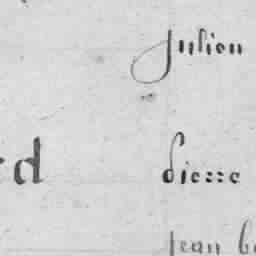 Julien
rd
pierre
jean be